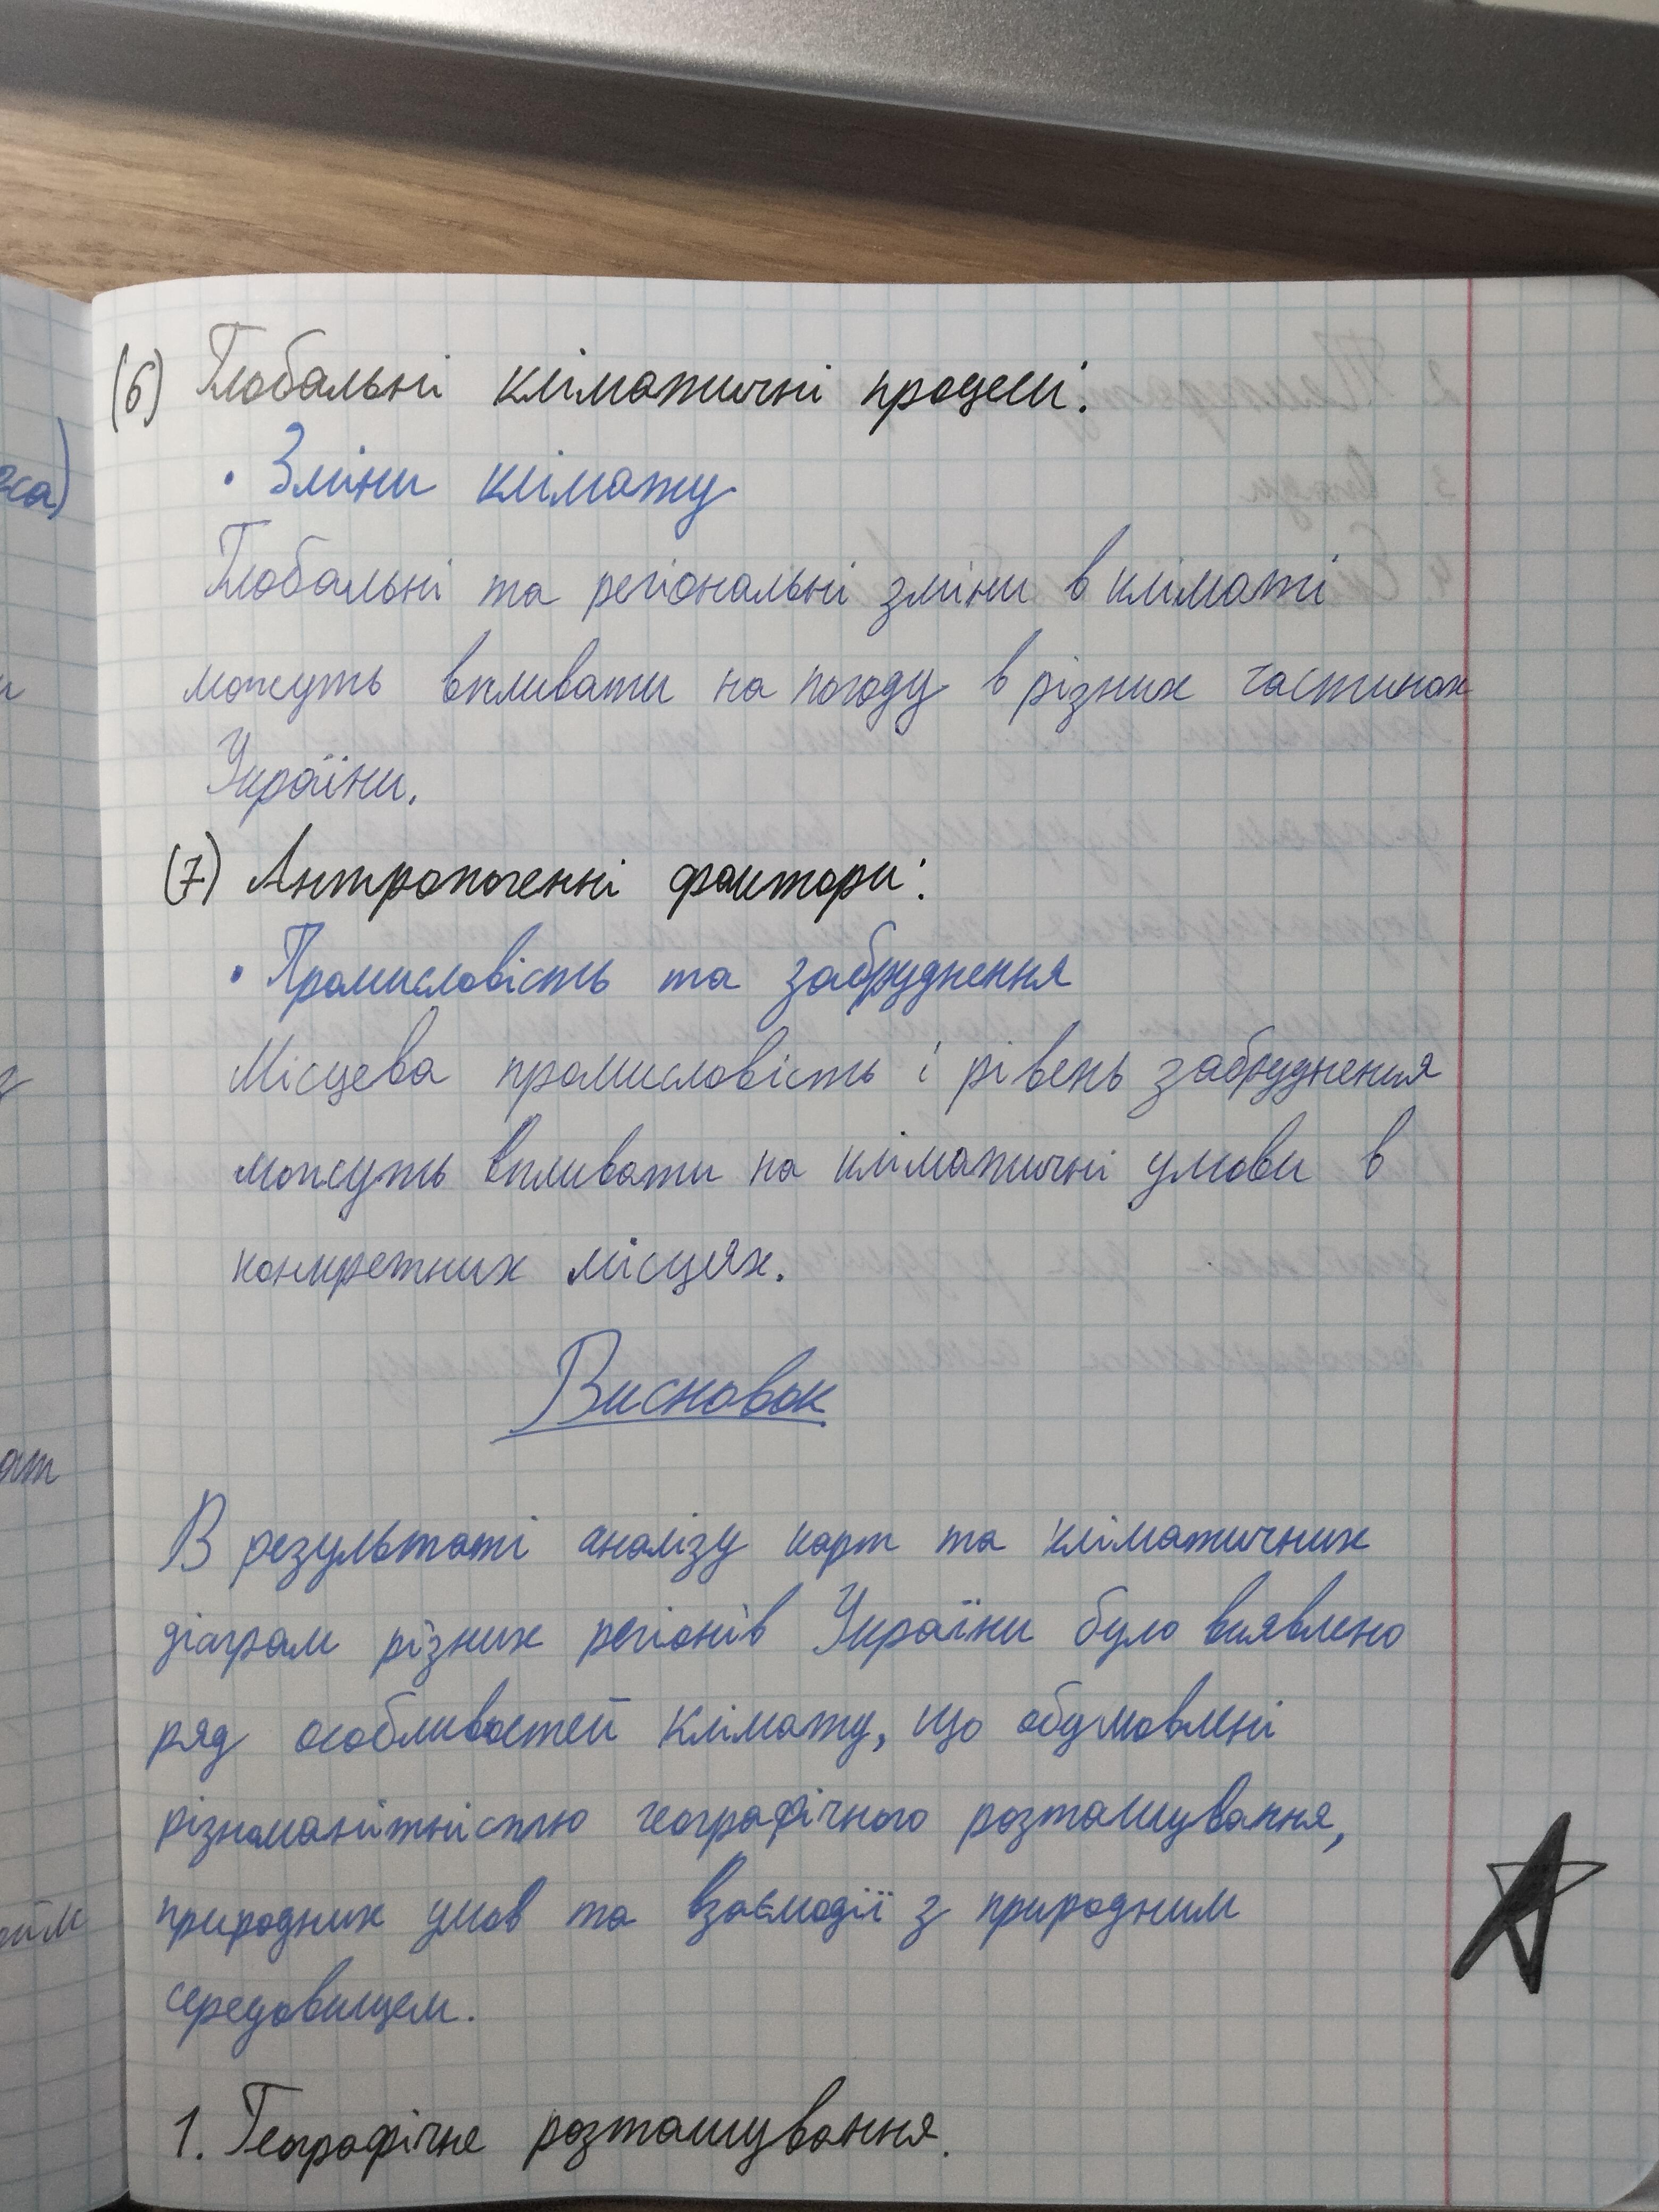 (6) Глобальні кліматичні процеси.
• Зміни клімату
Глобальні та регіональні зміни в кліматі
можуть впливати на погоду в різних частинах
України.
(7) Антропогенні фактори:
• Промисловість та забруднення
Місцева промисловість і рівень забруднення
можуть впливати на кліматичні умови в
конкретних місцях.
Висновок
В результаті аналізу карт та кліматичних
діаграм різних регіонів України було виявлено
ряд особливостей клімату, що обумовлені
різноманітністю географічного розташування,
природних умов та взаємодії з природним
середовищем.
1. Географічне розташування.